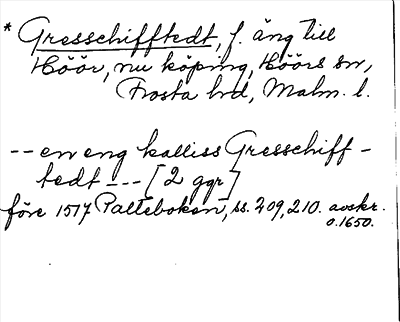 * Gresschifftedt, f. äng till
Höör, nu köping, Höörs sn,
Frosta hd, Malm. l.
-- en eng kalliss Gresschiff-
tedt --- [2 ggr]
före 1517 Palteboken, ss. 209, 210. avskr.
o. 1650.